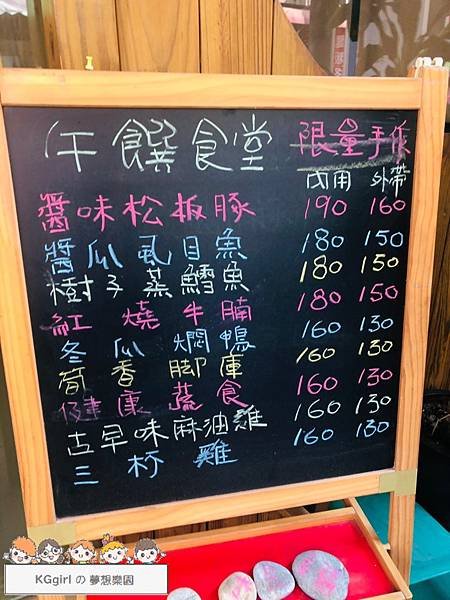 仵饌食堂 限量手作
內用 外帶
醬味松板豚 190 160
醬瓜虱目魚 180 150
樹子蒸鱈魚 180 150
紅燒牛腩 180 150
冬瓜燜鴨 160 130
筍香腳庫 160 130
健康蔬食 160 130
古早味麻油雞 160 130
三杯雞 160 130
KGgirl の 夢想樂園